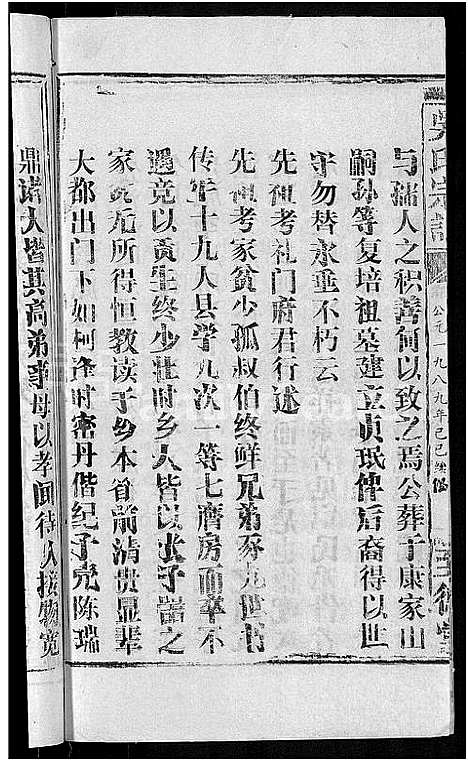 吴氏宗谱
公元一九八九年己巳续修
与孺人之积善何以致之焉公葬于康家山
嗣孙等复培祖墓建立贞珉俾后裔得以世
守勿替永垂不朽云
先祖考礼门府君行述
先祖考家贫少孤叔伯终鲜兄弟琢九世书
传年十九入县学九次一等七膺房荐卒不
遇竟以贡生终少壮时乡人皆以才子器之
家贫无所得恒教读于乡本省前清贵显辈
大都出门下如柯逢时密丹偕纪子尧陈瑞
鼎诸人皆其高弟事母以孝闻待人接物宽